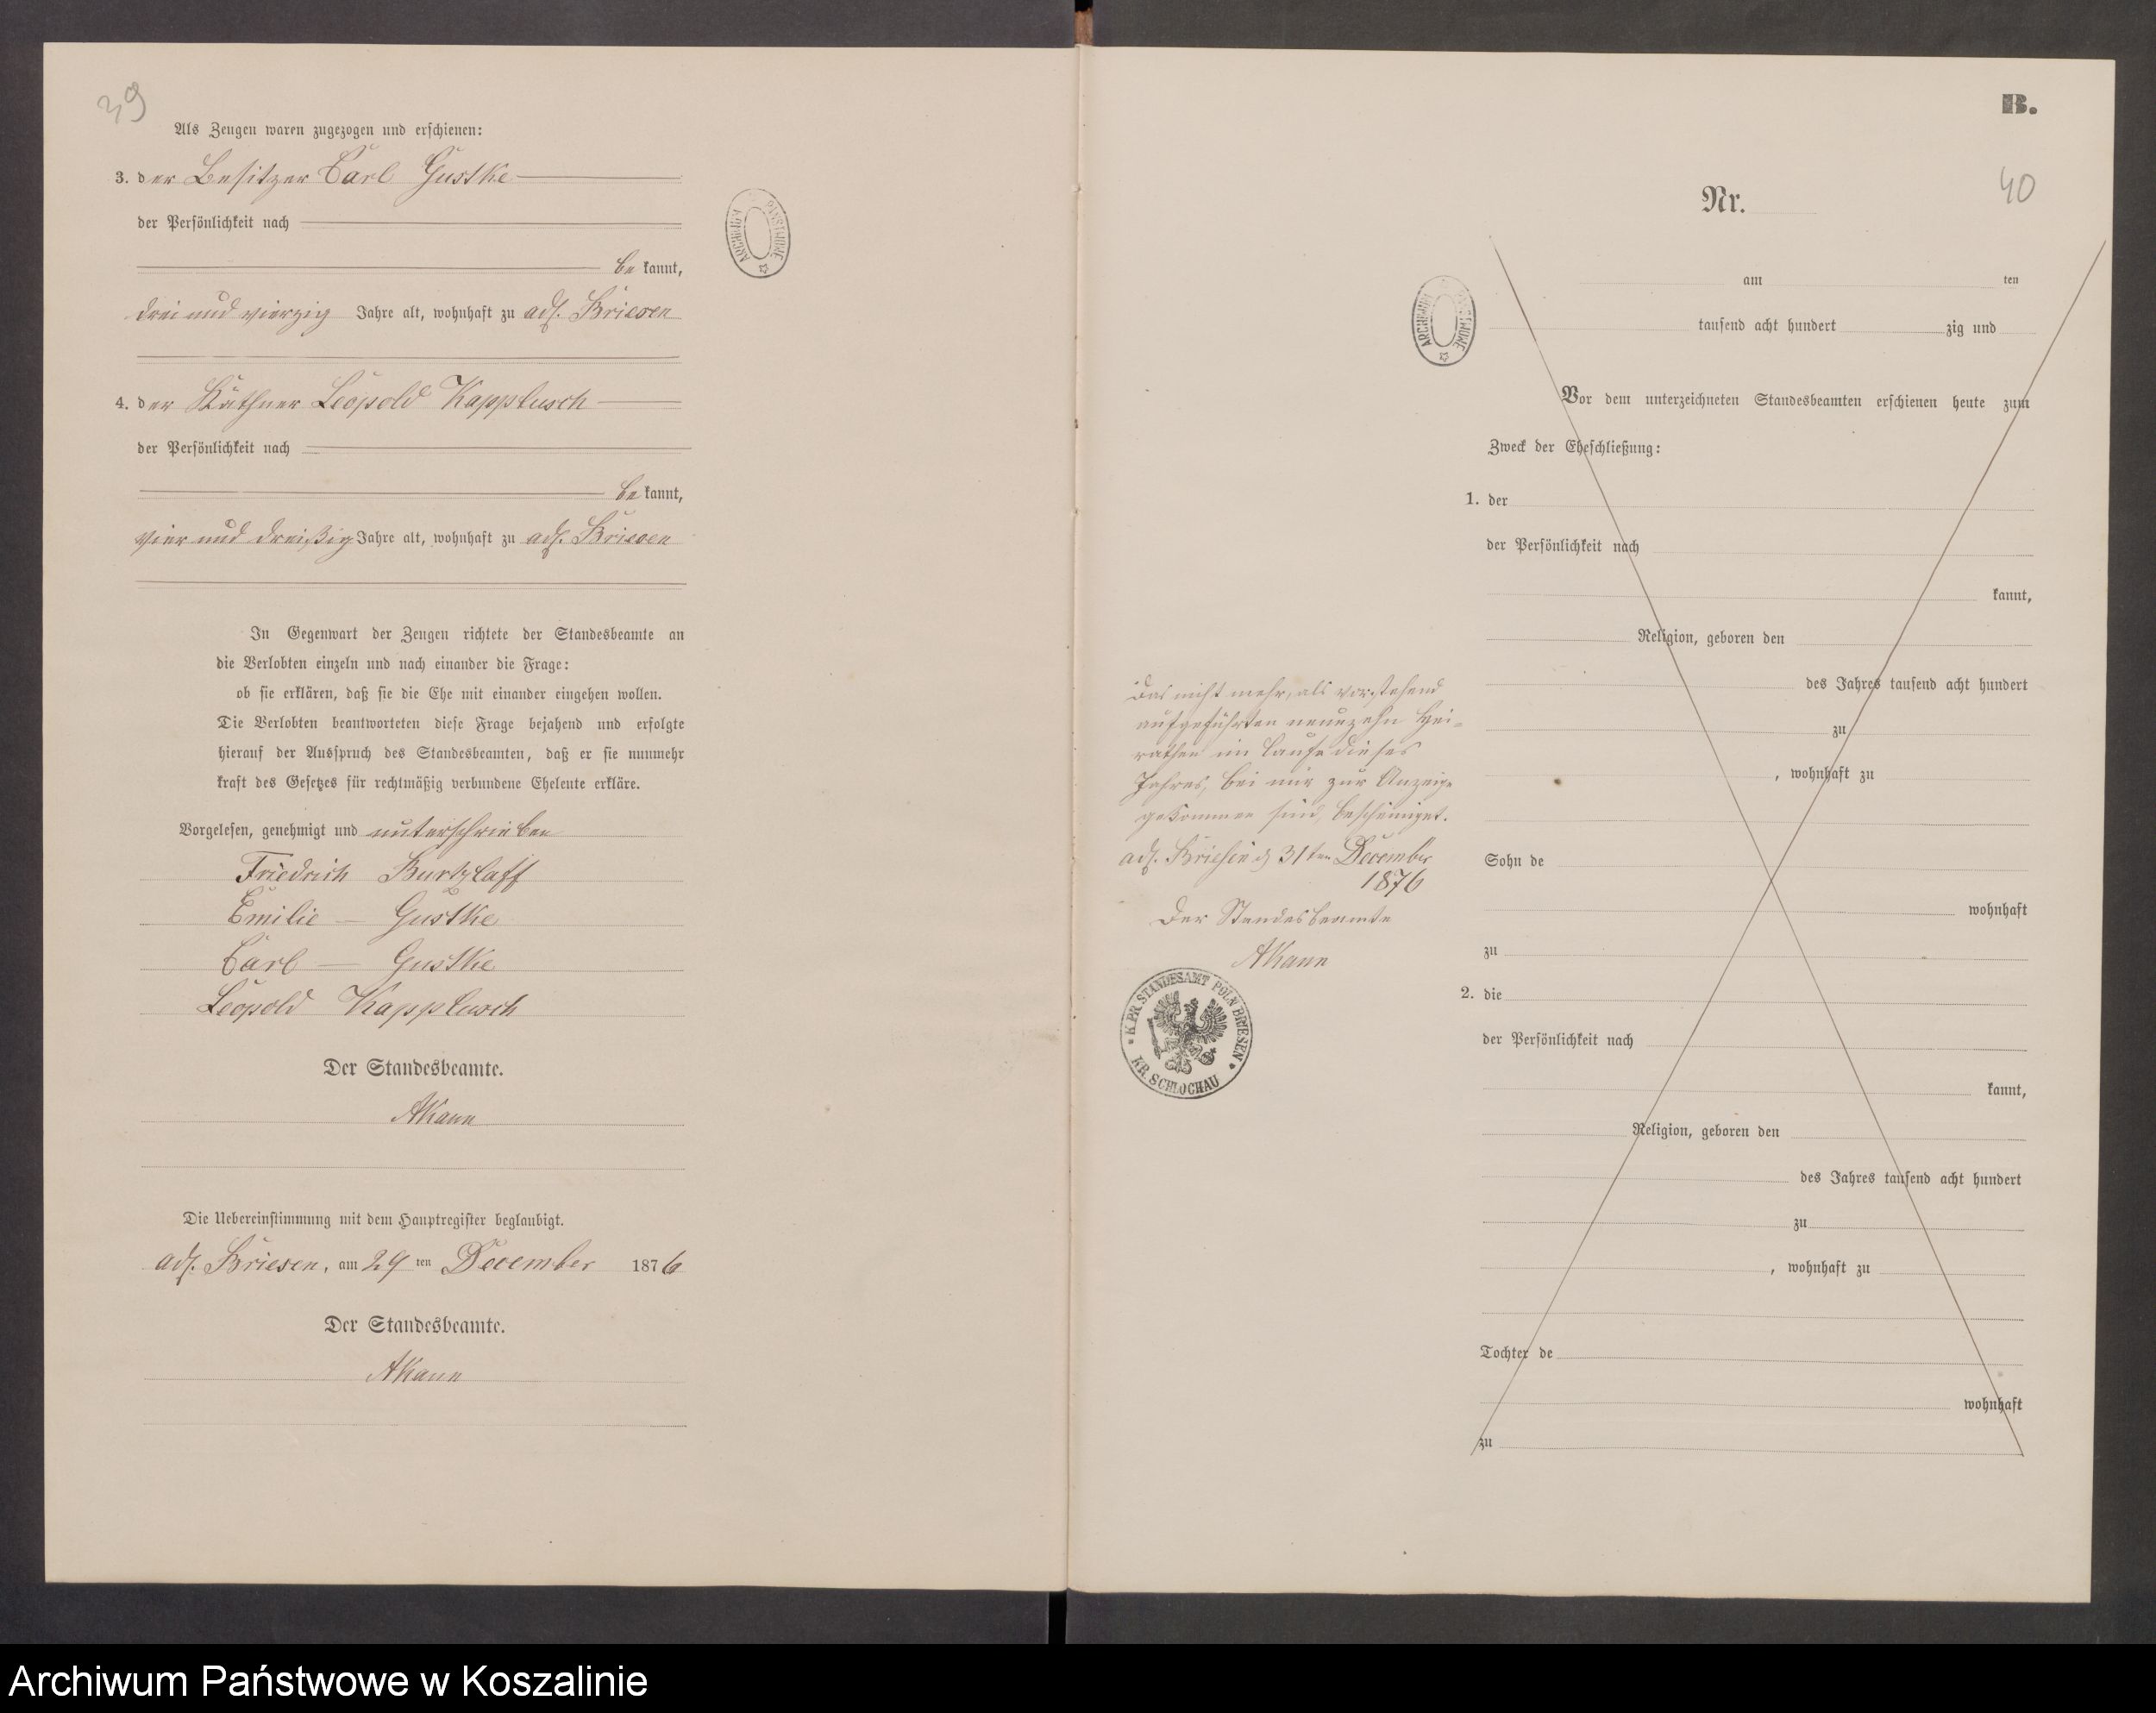 39
Als Zeugen waren zugezogen und erschienen:
3. der Besitzer Carl Gustke
der Persönlichkeit nach
be kannt,
drei und vierzig Jahre alt, wohnhaft zu adl. Briesen
4. der Käthner Leopold Kapplusch
der Persönlichkeit nach
be kannt,
vier und dreißig Jahre alt, wohnhaft zu adl. Briesen
In Gegenwart der Zeugen richtete der Standesbeamte an
die Verlobten einzeln und nach einander die Frage:
ob sie erklären, daß sie die Ehe mit einander eingehen wollen.
Die Verlobten beantworteten diese Frage bejahend und erfolgte
hierauf der Ausspruch des Standesbeamten, daß er sie nunmehr
kraft des Gesetzes für rechtmäßig verbundene Eheleute erkläre.
Vorgelesen, genehmigt und unterschrieben
Friedrich Kurtzlaff
Emilie Gustke
Carl Gustke
Leopold Kapplusch
Der Standesbeamte.
AKann
Die Uebereinstimmung mit dem Hauptregister beglaubigt.
adl. Briesen, am 29 ten December 1876
Der Standesbeamte.
AKann
ARCHIWUM PAŃSTWOWE
B.
40
Nr.
am ten
tausend acht hundert zig und
ARCHIWUM PAŃSTWOWE
Vor dem unterzeichneten Standesbeamten erschienen heute zum
Zweck der Eheschließung:
1. der
der Persönlichkeit nach
kannt,
Religion, geboren den
des Jahres tausend acht hundert
zu
, wohnhaft zu
Sohn de
wohnhaft
zu
2. die
der Persönlichkeit nach
kannt,
Religion, geboren den
des Jahres tausend acht hundert
zu
, wohnhaft zu
Tochter de
wohnhaft
zu
Das nicht mehr, als vorstehend
aufgeführten neunzehn Hei-
rathen im Laufe dieses
Jahres, bei mir zur Anzeige
gekommen sind, bescheiniget.
adl. Briesen d 31ten December
1876
Der Standesbeamte
AKann
K. PR. STANDESAMT POLN BRIESEN
KR. SCHLOCHAU
Archiwum Państwowe w Koszalinie